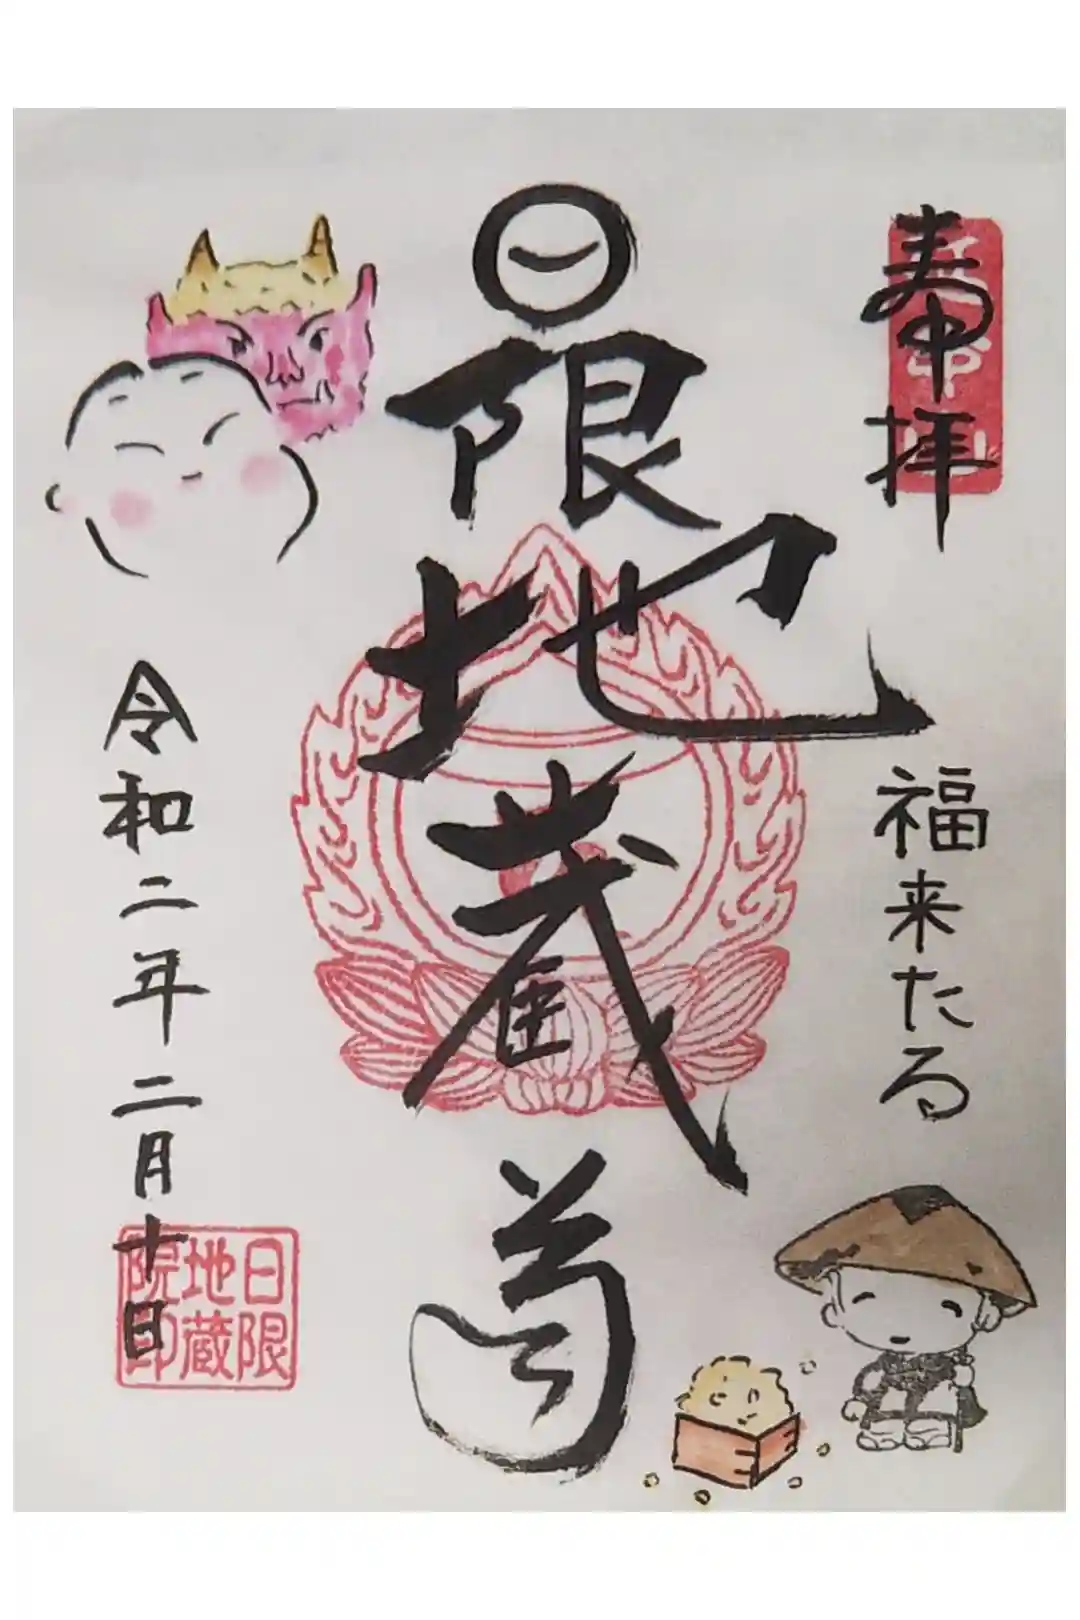 奉拝
福来たる
日限地蔵尊
令和二年二月十日
日限
地蔵
院印